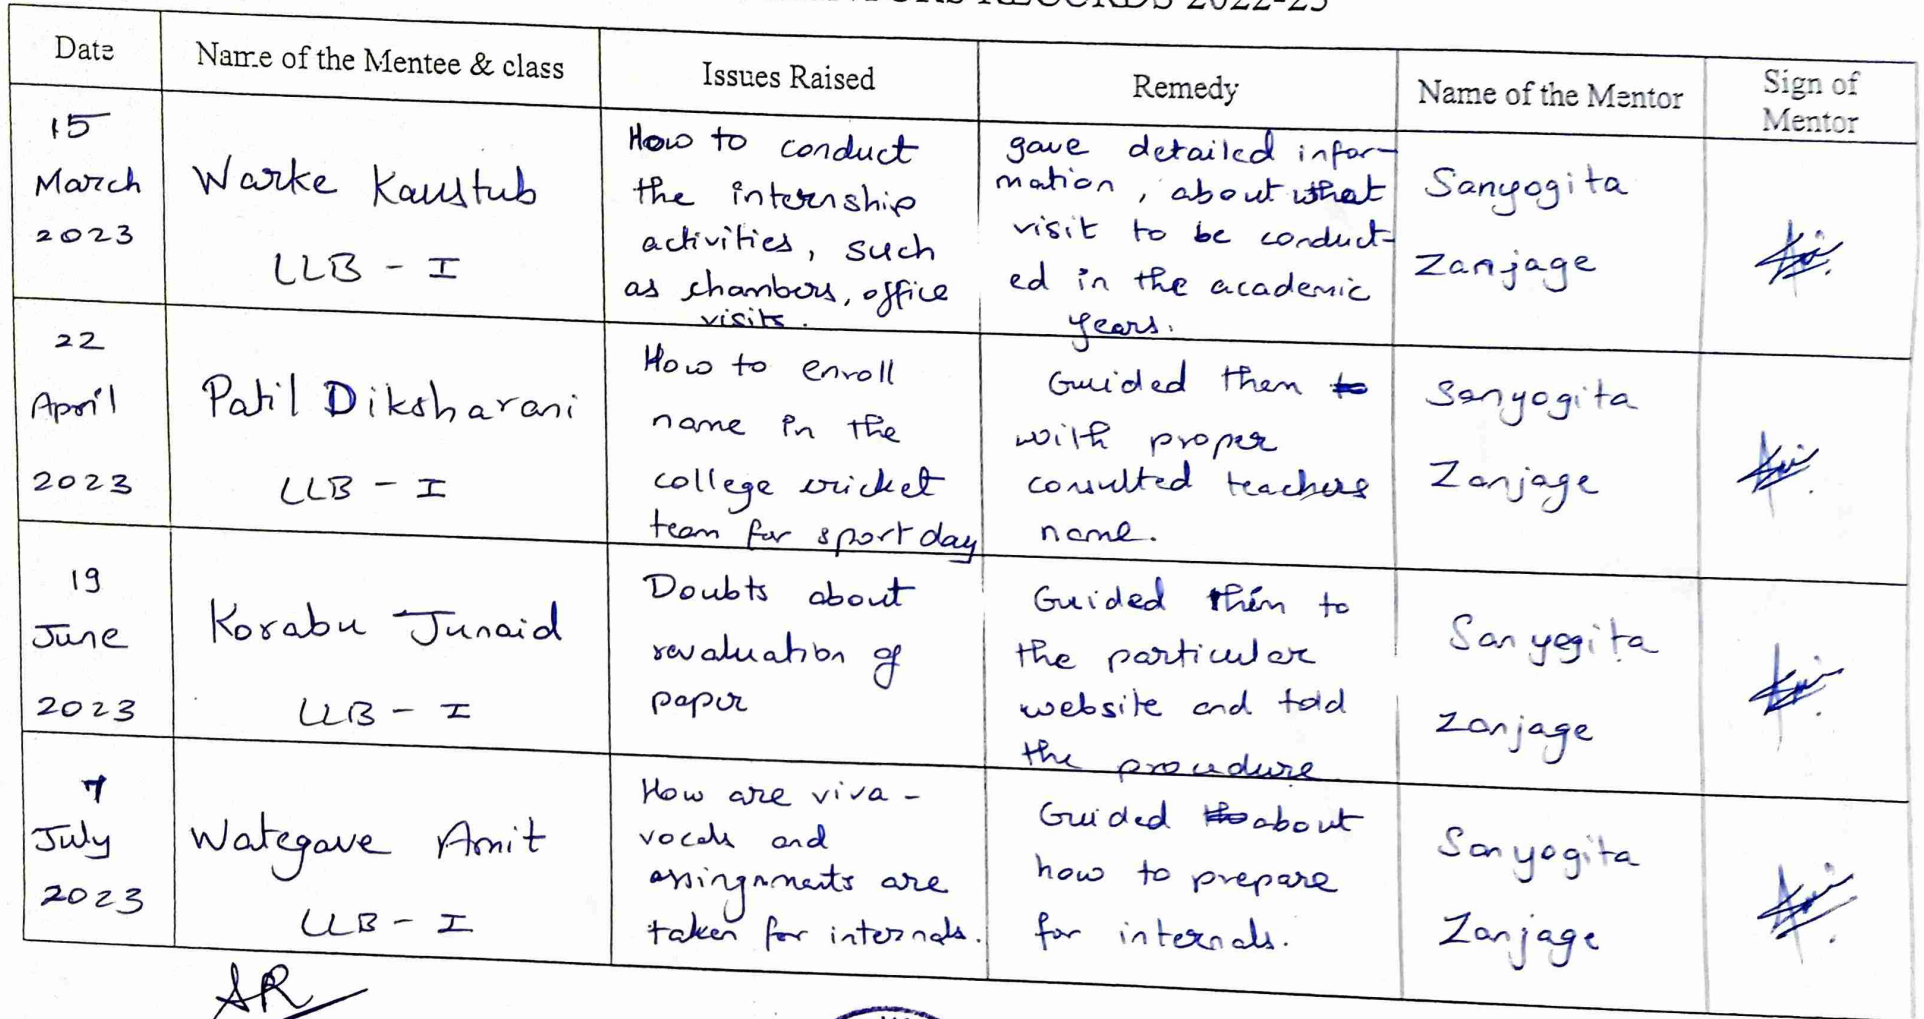 RECORDS 2022-23
Date
Name of the Mentee & class
Issues Raised
Remedy
Name of the Mentor
Sign of
Mentor
15
March
2023
Warke Kaustub
LLB - I
How to conduct
the internship
activities, such
as chambers, office
visits.
gave detailed infor-
mation, about what
visit to be conduct-
ed in the academic
years.
Sanyogita
Zanjage
22
April
2023
Patil Diksharani
LLB - I
How to enroll
name in the
college cricket
team for sport day
Guided them to
with proper
consulted teachers
name.
Sanyogita
Zanjage
19
June
2023
Korabu Junaid
LLB - I
Doubts about
revaluation of
paper
Guided them to
the particular
website and told
the procedure
Sanyogita
Zanjage
7
July
2023
Wategave Amit
LLB - I
How are viva-
vocals and
assingnments are
taken for internals.
Guided about
how to prepare
for internals.
Sanyogita
Zanjage
AR